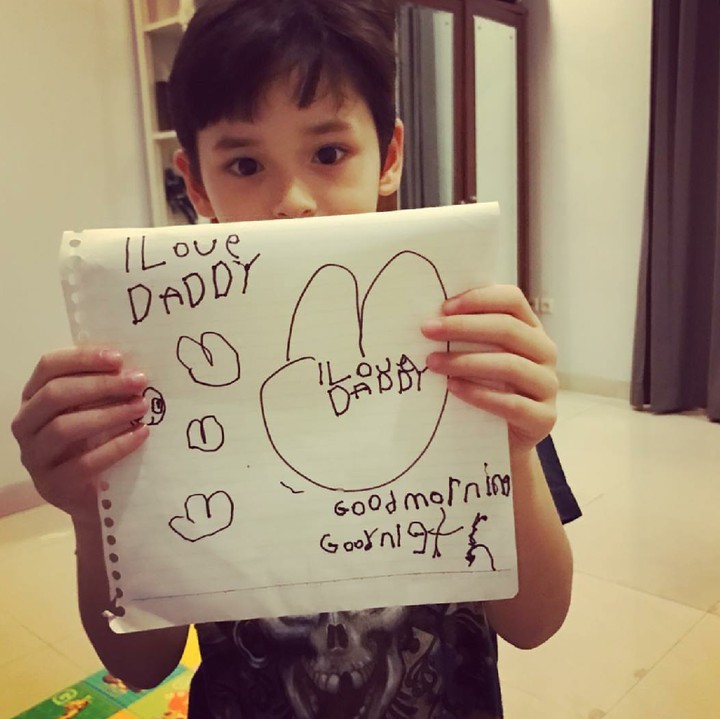 I Love
DADDY
I Love
DADDY
Goodmorning
Goodnigt